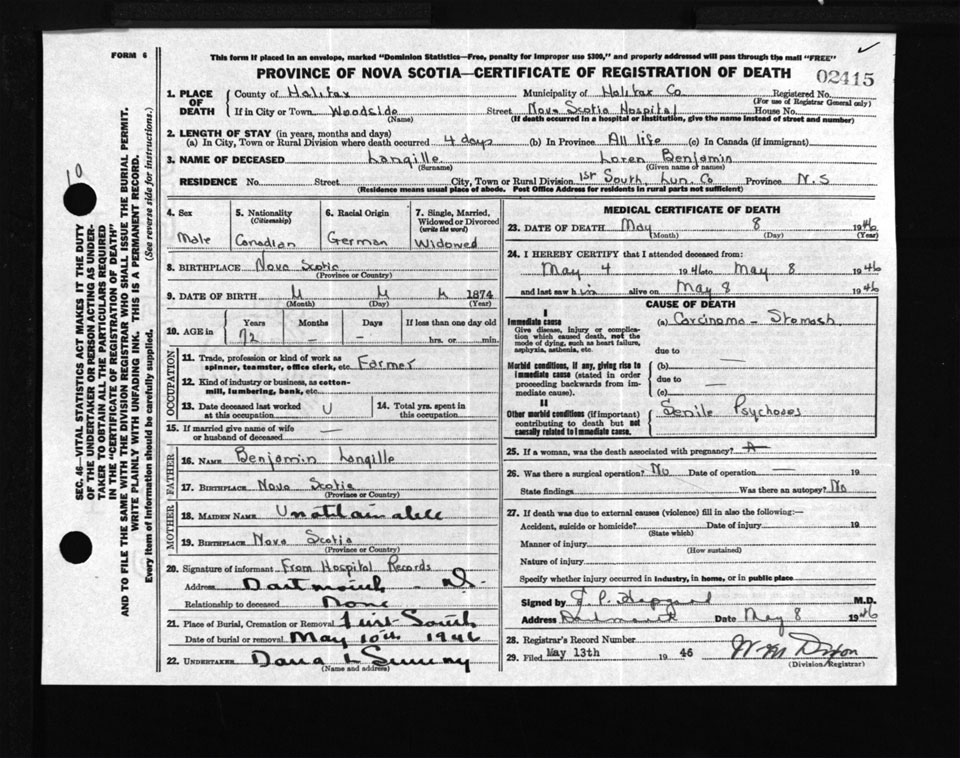 FORM 6
This form if placed in an envelope, marked "Dominion Statistics—Free, penalty for improper use $300," and properly addressed will pass through the mail "FREE"
PROVINCE OF NOVA SCOTIA—CERTIFICATE OF REGISTRATION OF DEATH
02415
1. PLACE OF DEATH
County of Halifax Municipality of Halifax Co Registered No.
(For use of Registrar General only)
If in City or Town Woodside Street Nova Scotia Hospital House No.
(Name) (If death occurred in a hospital or institution, give the name instead of street and number)
2. LENGTH OF STAY (in years, months and days)
(a) In City, Town or Rural Division where death occurred 4 days (b) In Province All life (c) In Canada (if immigrant)
3. NAME OF DECEASED Langille Loren Benjamin
(Surname) (Given name or names)
RESIDENCE No. Street City, Town or Rural Division 1st South, Lun. Co Province N.S
(Residence means usual place of abode. Post Office Address for residents in rural parts not sufficient)
4. Sex 5. Nationality (Citizenship) 6. Racial Origin 7. Single, Married, Widowed or Divorced (write the word)
Male Canadian German Widowed
8. BIRTHPLACE Nova Scotia
(Province or Country)
9. DATE OF BIRTH U U U 1874
(Month) (Day) (Year)
10. AGE in Years Months Days If less than one day old
72 — — hrs. or min.
OCCUPATION
11. Trade, profession or kind of work as spinner, teamster, office clerk, etc. Farmer
12. Kind of industry or business, as cotton-mill, lumbering, bank, etc.
13. Date deceased last worked at this occupation U 14. Total yrs. spent in this occupation
15. If married give name of wife or husband of deceased —
FATHER
16. NAME Benjamin Langille
17. BIRTHPLACE Nova Scotia
(Province or Country)
MOTHER
18. MAIDEN NAME Unobtainable
19. BIRTHPLACE Nova Scotia
(Province or Country)
20. Signature of informant From Hospital Records
Address Dartmouth N.S.
Relationship to deceased None
21. Place of Burial, Cremation or Removal First South
Date of burial or removal May 10th 1946
22. UNDERTAKER Dana L Sweeny
(Name and address)
MEDICAL CERTIFICATE OF DEATH
23. DATE OF DEATH May 8 1946
(Month) (Day) (Year)
24. I HEREBY CERTIFY that I attended deceased from:
May 4 1946 to May 8 1946
and last saw him alive on May 8 1946
CAUSE OF DEATH
I
Immediate cause
Give disease, injury or complication which caused death, not the mode of dying, such as heart failure, asphyxia, asthenia, etc.
(a) Carcinoma - Stomach
due to
Morbid conditions, if any, giving rise to immediate cause (stated in order proceeding backwards from immediate cause).
(b) —
due to —
(c)
II
Other morbid conditions (if important) contributing to death but not causally related to immediate cause.
Senile Psychoses
25. If a woman, was the death associated with pregnancy?
26. Was there a surgical operation? No Date of operation — 19
State findings Was there an autopsy? No
27. If death was due to external causes (violence) fill in also the following:—
Accident, suicide or homicide? Date of injury 19
(State which)
Manner of injury
(How sustained)
Nature of injury
Specify whether injury occurred in industry, in home, or in public place
Signed by M.D.
Address Dartmouth Date May 8 1946
28. Registrar's Record Number
29. Filed May 13th 1946 Wm Dixon
(Division Registrar)
SEC. 46—VITAL STATISTICS ACT MAKES IT THE DUTY
OF THE UNDERTAKER OR PERSON ACTING AS UNDER-
TAKER TO OBTAIN ALL THE PARTICULARS REQUIRED
IN THE "CERTIFICATE OF REGISTRATION OF DEATH"
AND TO FILE THE SAME WITH THE DIVISION REGISTRAR WHO SHALL ISSUE THE BURIAL PERMIT.
WRITE PLAINLY WITH UNFADING INK. THIS IS A PERMANENT RECORD.
Every item of information should be carefully supplied. (See reverse side for instructions.)